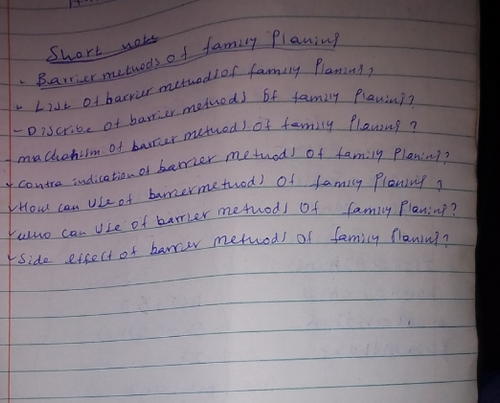 Short note
- Barrier methods of family Planing
- List of barrier methods of family Planing?
- Discribe of barrier methods of family Planing?
- machahism of barrier methods of family Planing?
✓ contra indication of barrier methods of family Planing?
✓ How can Use of barrier methods of family Planing?
✓ who can Use of barrier methods of family Planing?
✓ Side effect of barrier methods of family Planing?